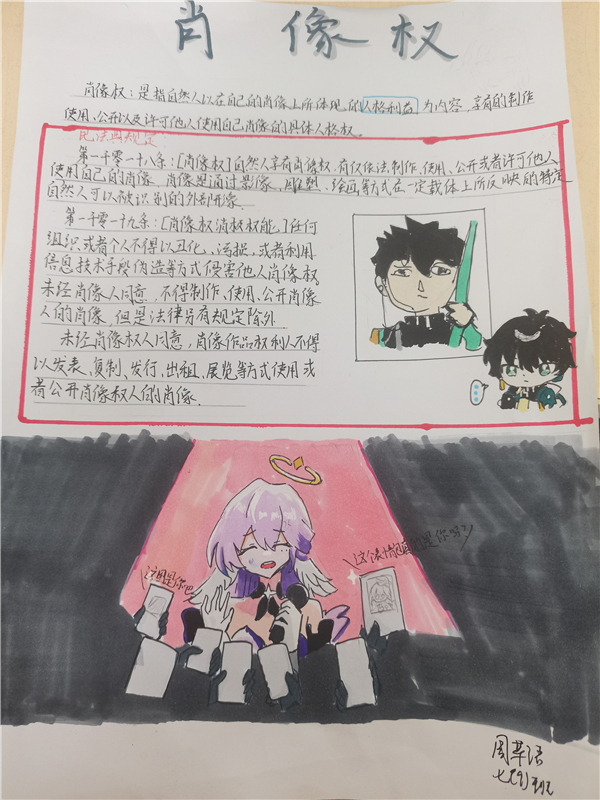 肖像权
肖像权：是指自然人以在自己的肖像上所体现的人格利益为内容，享有的制作
使用、公开以及许可他人使用自己肖像的具体人格权。
民法典规定
第一千零一十八条：[肖像权]自然人享有肖像权，有权依法制作、使用、公开或者许可他人
使用自己的肖像。肖像是通过影像、雕塑、绘画等方式在一定载体上所反映的特定
自然人可以被识别的外部形象。
第一千零一十九条：[肖像权消极权能]任何
组织或者个人不得以丑化、污损，或者利用
信息技术手段伪造等方式侵害他人肖像权。
未经肖像人同意，不得制作、使用、公开肖像
人的肖像，但是法律另有规定除外
未经肖像权人同意，肖像作品权利人不得
以发表、复制、发行、出租、展览等方式使用或
者公开肖像权人的肖像。
这图是你吧
这个表情包是你吗？
七(9)班